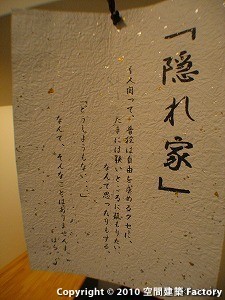 「隠れ家」
人間って、普段は自由を求めるクセに、
たまには狭いところに籠もりたい
なんて思ったりもする。
「どうしようもない…」
なんて、そんなことはありませんよ。
Copyright © 2010 空間建築 Factory